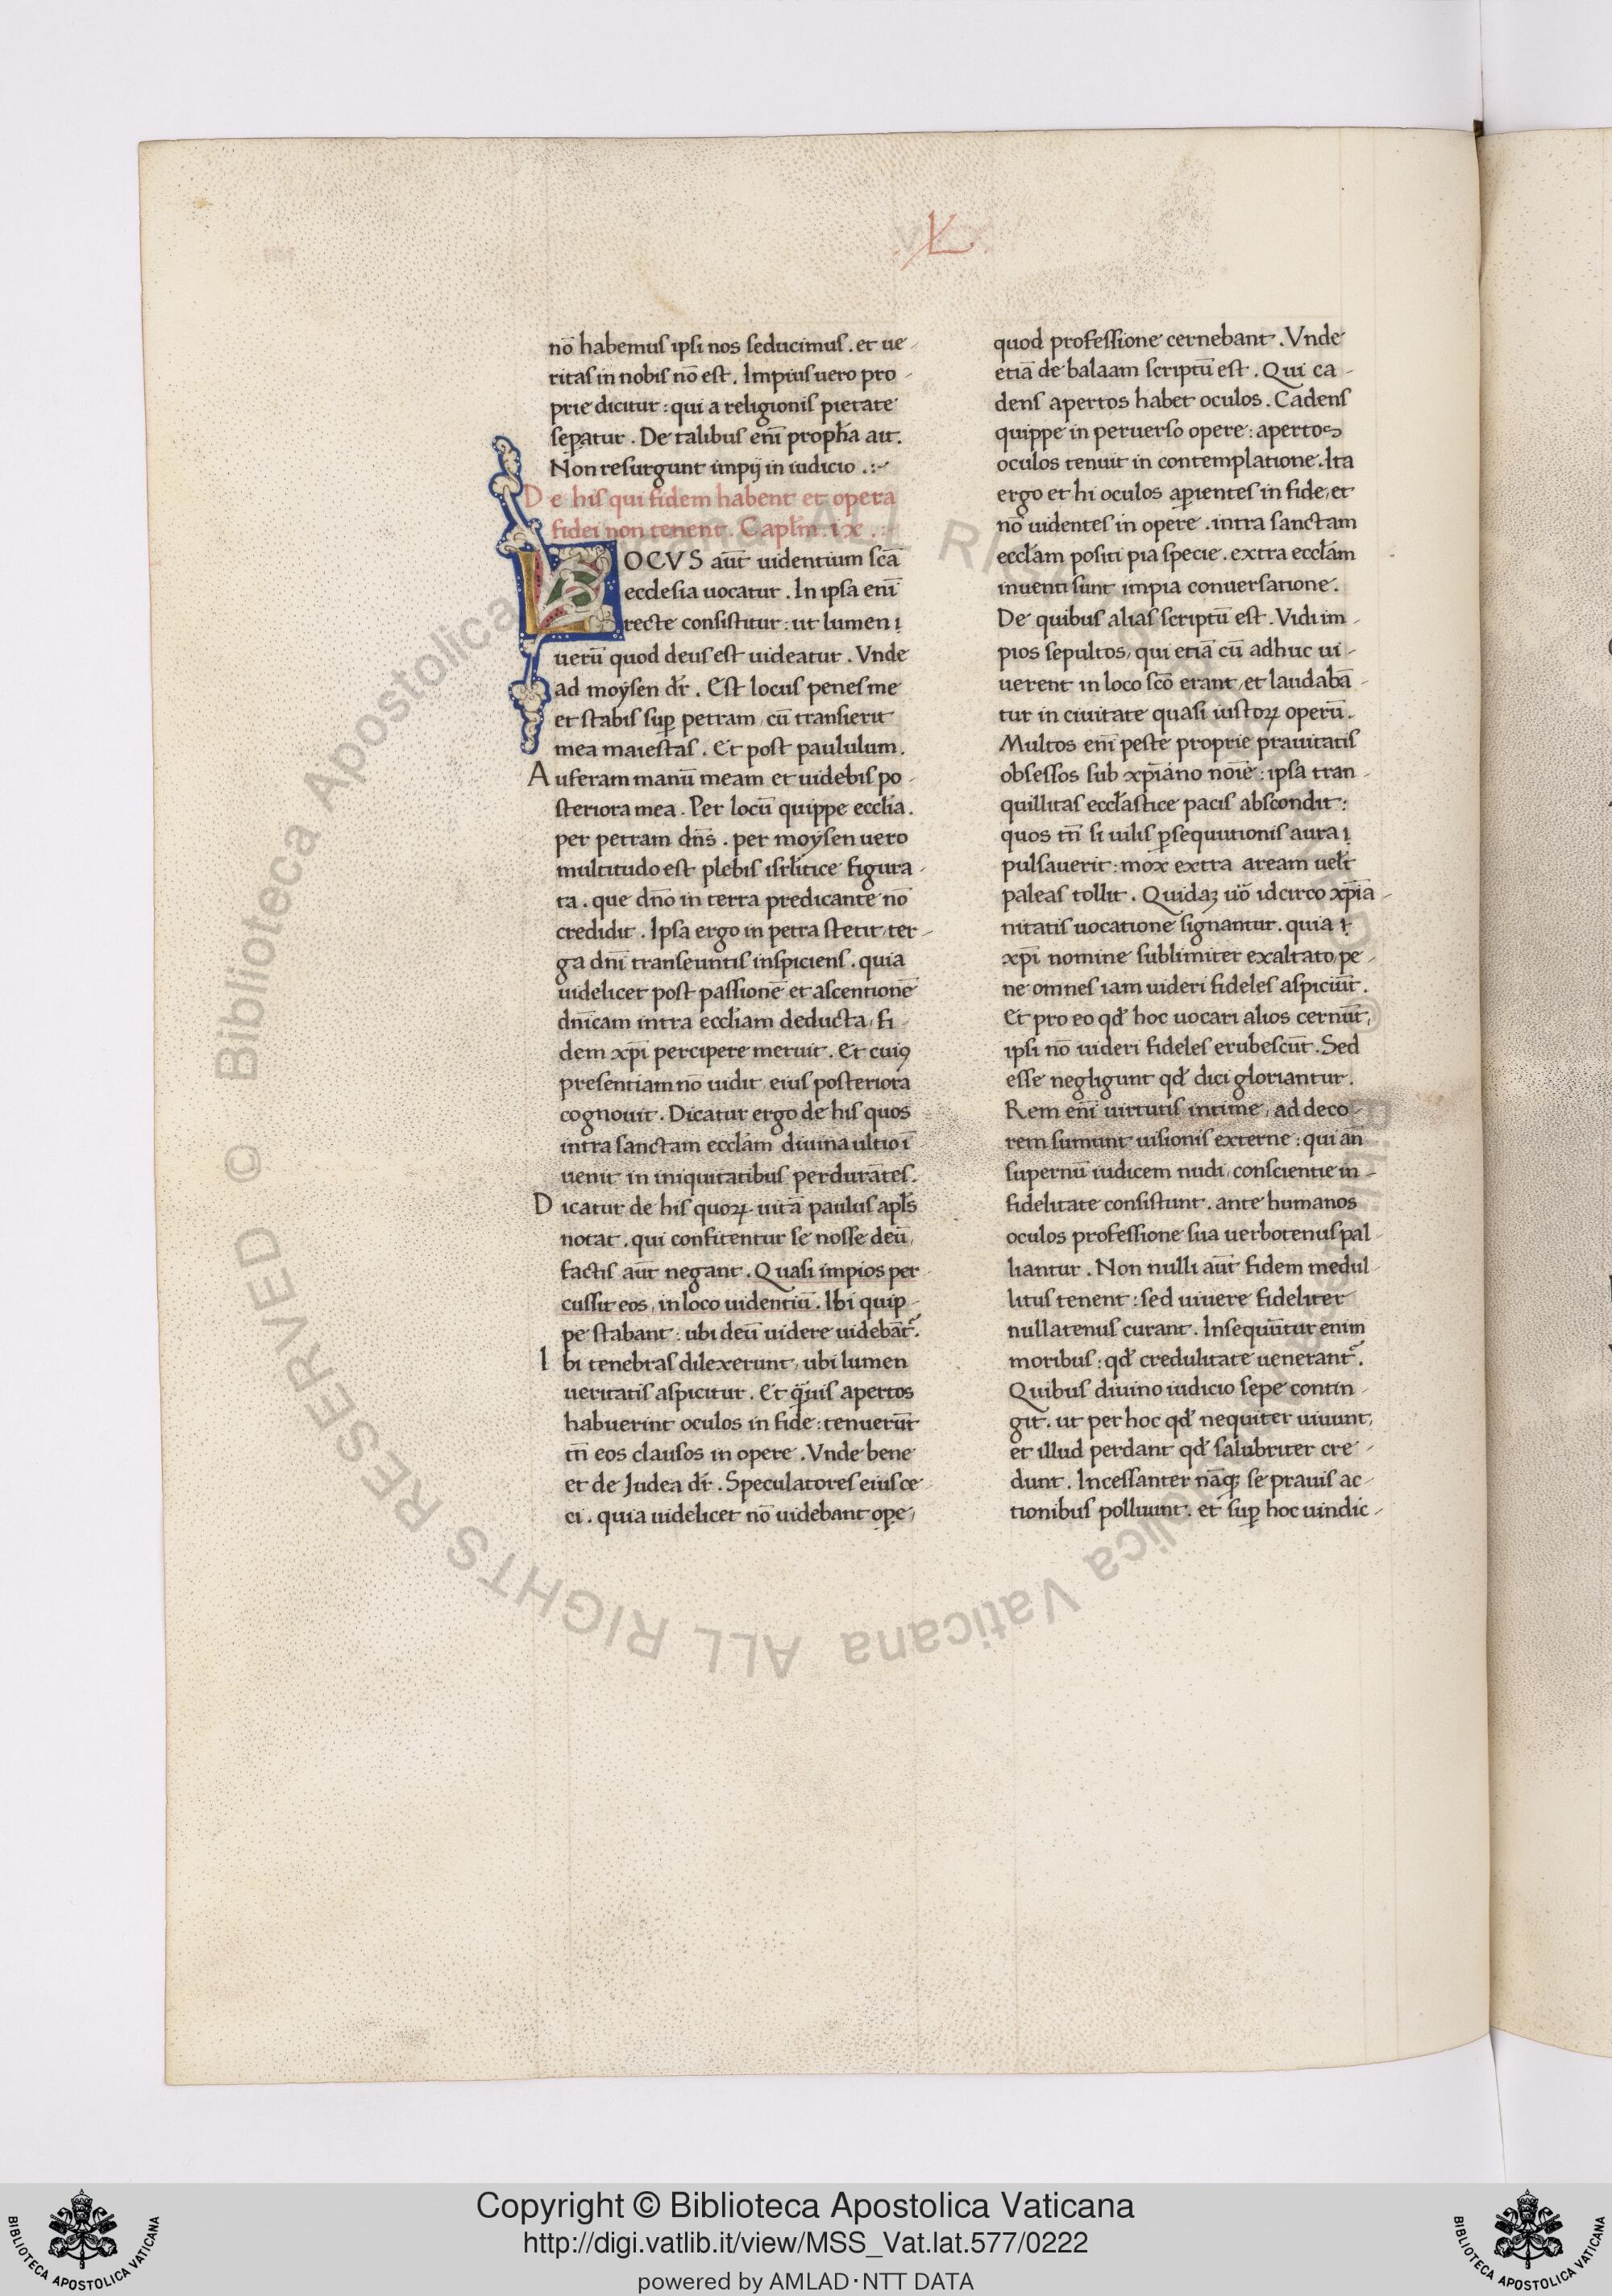 .L.
nō habemus ipsi nos seducimus. et ue-
ritas in nobis nō est. Impius uero pro-
prie dicitur: qui a religionis pietate
sep̱atur. De talibus enī proph̄a ait.
Non resurgunt impij in iudicio.:-
De his qui fidem habent et opera
fidei non tenent. Capl̄m. ix.:-
LOCVS aūt uidentium scā
ecclesia uocatur. In ipsa enī
recte consistitur: ut lumen ı
uerū quod deus est uideatur. Vnde
ad moẏsen dr̄. Est locus penes me
et stabis sup̱ petram, cū transierit
mea maiestas. Et post paululum.
Auferam manū meam et uidebis po-
steriora mea. Per locū quippe eccl̄ia.
per petram dn̄s. per moẏsen uero
multitudo est plebis isrl̄itice figura-
ta. que dn̄o in terra predicante nō
credidit. Ipsa ergo in petra stetit, ter-
ga dnī transeuntis inspiciens. quia
uidelicet post passionē et ascentionē
dnīcam intra eccl̄iam deducta, fi-
dem xp̄i percipere meruit. Et cuiꝯ
presentiam nō uidit, eius posteriora
cognouit. Dicatur ergo de his quos
intra sanctam eccl̄am diuina ultio ī
uenit in iniquitatibus perdurātes.
Dicatur de his quoꝝ uitā paulus apl̄s
notat. qui confitentur se nosse deū,
factis aūt negant. Quasi impios per-
cussit eos, in loco uidentiū. Ibi quip-
pe stabant: ubi deū uidere uidebāt᷑.
Ibi tenebras dilexerunt, ubi lumen
ueritatis aspicitur. Et q̄uis apertos
habuerint oculos in fide: tenuerūt
tn̄ eos clausos in opere. Vnde bene
et de Judea dr̄. Speculatores eius ce-
ci. quia uidelicet nō uidebant ope,
quod professione cernebant. Vnde
etiā de balaam scriptū est. Qui ca-
dens apertos habet oculos. Cadens
quippe in peruerso opere: apertos
oculos tenuit in contemplatione. Ita
ergo et hi oculos ap̱ientes in fide, et
nō uidentes in opere. intra sanctam
eccl̄am positi pia specie. extra eccl̄am
inuenti sunt impia conuersatione.
De quibus alias scriptū est. Vidi im-
pios sepultos, qui etiā cū adhuc ui-
uerent in loco scō erant, et laudabā-
tur in ciuitate quasi iustoꝝ operū.
Multos enī peste proprie prauitatis
obsessos sub xp̄iano noīe: ipsa tran-
quillitas eccl̄astice pacis abscondit:
quos tn̄ si uilis ꝑsequutionis aura ı
pulsauerit: mox extra aream uel̄t
paleas tollit. Quidaꝫ uō idcirco xp̄ia-
nitatis uocatione signantur. quia ı
xp̄i nomine sublimiter exaltato, pe-
ne omnes iam uideri fideles aspiciūt.
Et pro eo qđ hoc uocari alios cernūt,
ipsi nō uideri fideles erubescūt. Sed
esse negligunt qđ dici gloriantur.
Rem enī uirtutis intime, ad deco-
rem sumunt uisionis externe: qui an̄
supernū iudicem nudi, conscientie in-
fidelitate consistunt. ante humanos
oculos professione sua uerbotenus pal-
liantur. Non nulli aūt fidem medul-
litus tenent: sed uiuere fideliter
nullatenus curant. Insequūtur enim
moribus: qđ credulitate uenerant᷑.
Quibus diuino iudicio sepe contin-
git. ut per hoc qđ nequiter uiuunt,
et illud perdant qđ salubriter cre-
dunt. Incessanter nāqꝫ se prauis ac-
tionibus polluunt. et sup̱ hoc uindic-
© Biblioteca Apostolica Vaticana ALL RIGHTS RESERVED
Copyright © Biblioteca Apostolica Vaticana
http://digi.vatlib.it/view/MSS_Vat.lat.577/0222
powered by AMLAD·NTT DATA
BIBLIOTECA APOSTOLICA VATICANA
BIBLIOTECA APOSTOLICA VATICANA